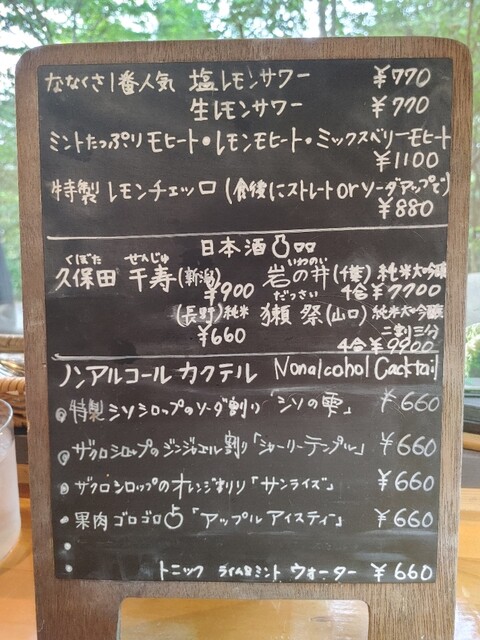 ななくさ1番人気 塩レモンサワー ¥770
生レモンサワー ¥770
ミントたっぷりモヒート・レモンモヒート・ミックスベリーモヒート
¥1100
特製 レモンチェッロ (食後にストレートorソーダアップで)
¥880
日本酒
くぼた せんじゅ
久保田 千寿(新潟)
¥900
(長野)純米
¥660
いわのい
岩の井(千葉)純米大吟醸
4合¥7700
だっさい
獺祭(山口)純米大吟醸
二割三分
4合¥9900
ノンアルコールカクテル Nonalcohol Cacktail
特製シソシロップのソーダ割り「シソの雫」 ¥660
ザクロシロップのジンジャエル割り「シャーリーテンプル」 ¥660
ザクロシロップのオレンジ割り「サンライズ」 ¥660
果肉ゴロゴロ「アップルアイスティー」 ¥660
トニック ライム&ミント ウォーター ¥660